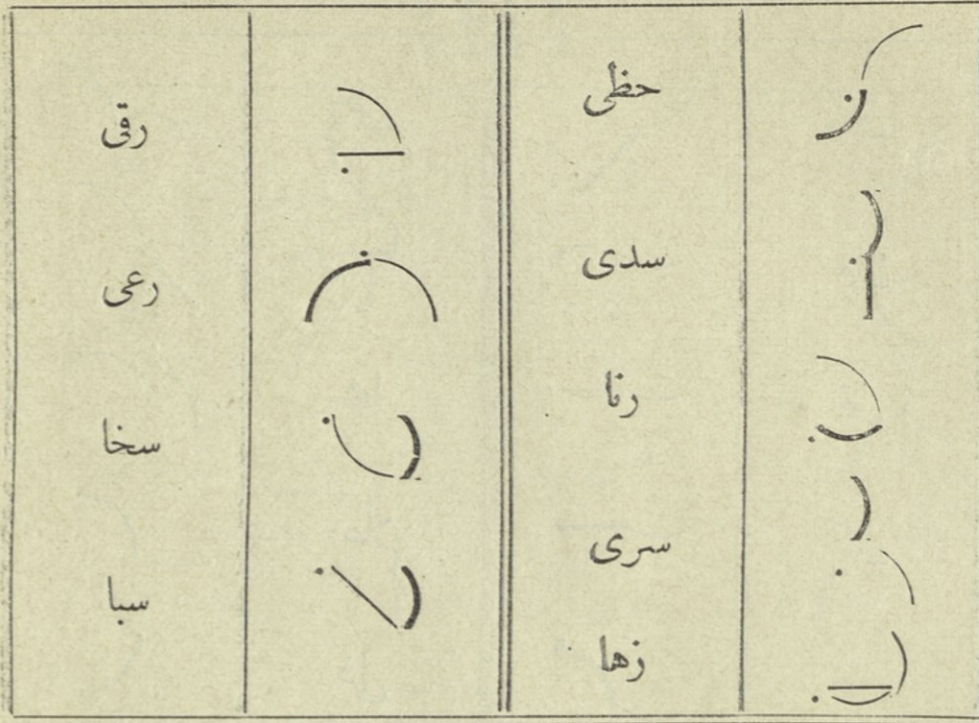 حظى
سدى
رنا
سرى
زها
رقى
رعى
سخا
سبا